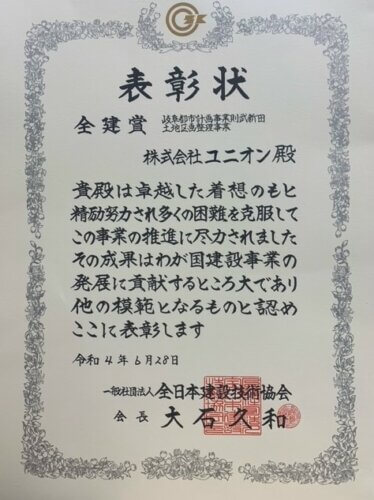 表彰状
全建賞 岐阜都市計画事業則武新田
土地区画整理事業
株式会社ユニオン殿
貴殿は卓越した着想のもと
精励努力され多くの困難を克服して
この事業の推進に尽力されました
その成果はわが国建設事業の
発展に貢献するところ大であり
他の模範となるものと認め
ここに表彰します
令和4年6月28日
一般社団法人 全日本建設技術協会
会長 大石久和